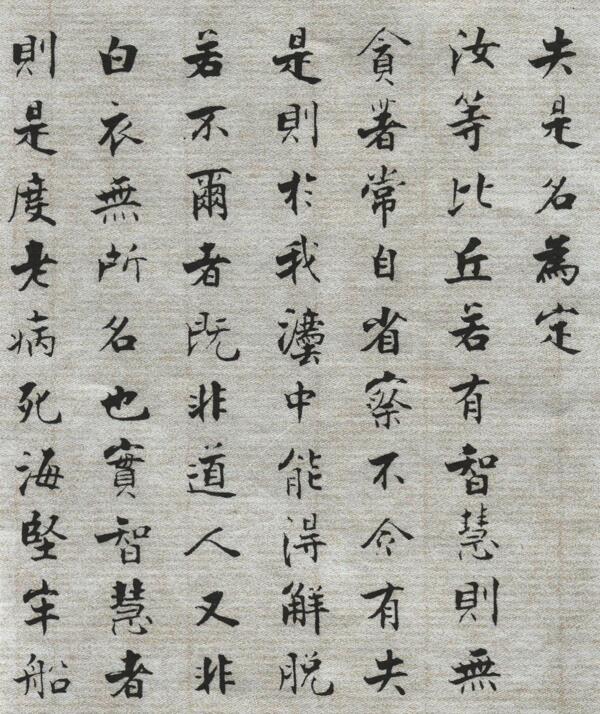 失是名為定
汝等比丘若有智慧則無
貪著常自省察不令有失
是則於我灋中能得解脫
若不爾者既非道人又非
白衣無所名也實智慧者
則是度老病死海堅牢船